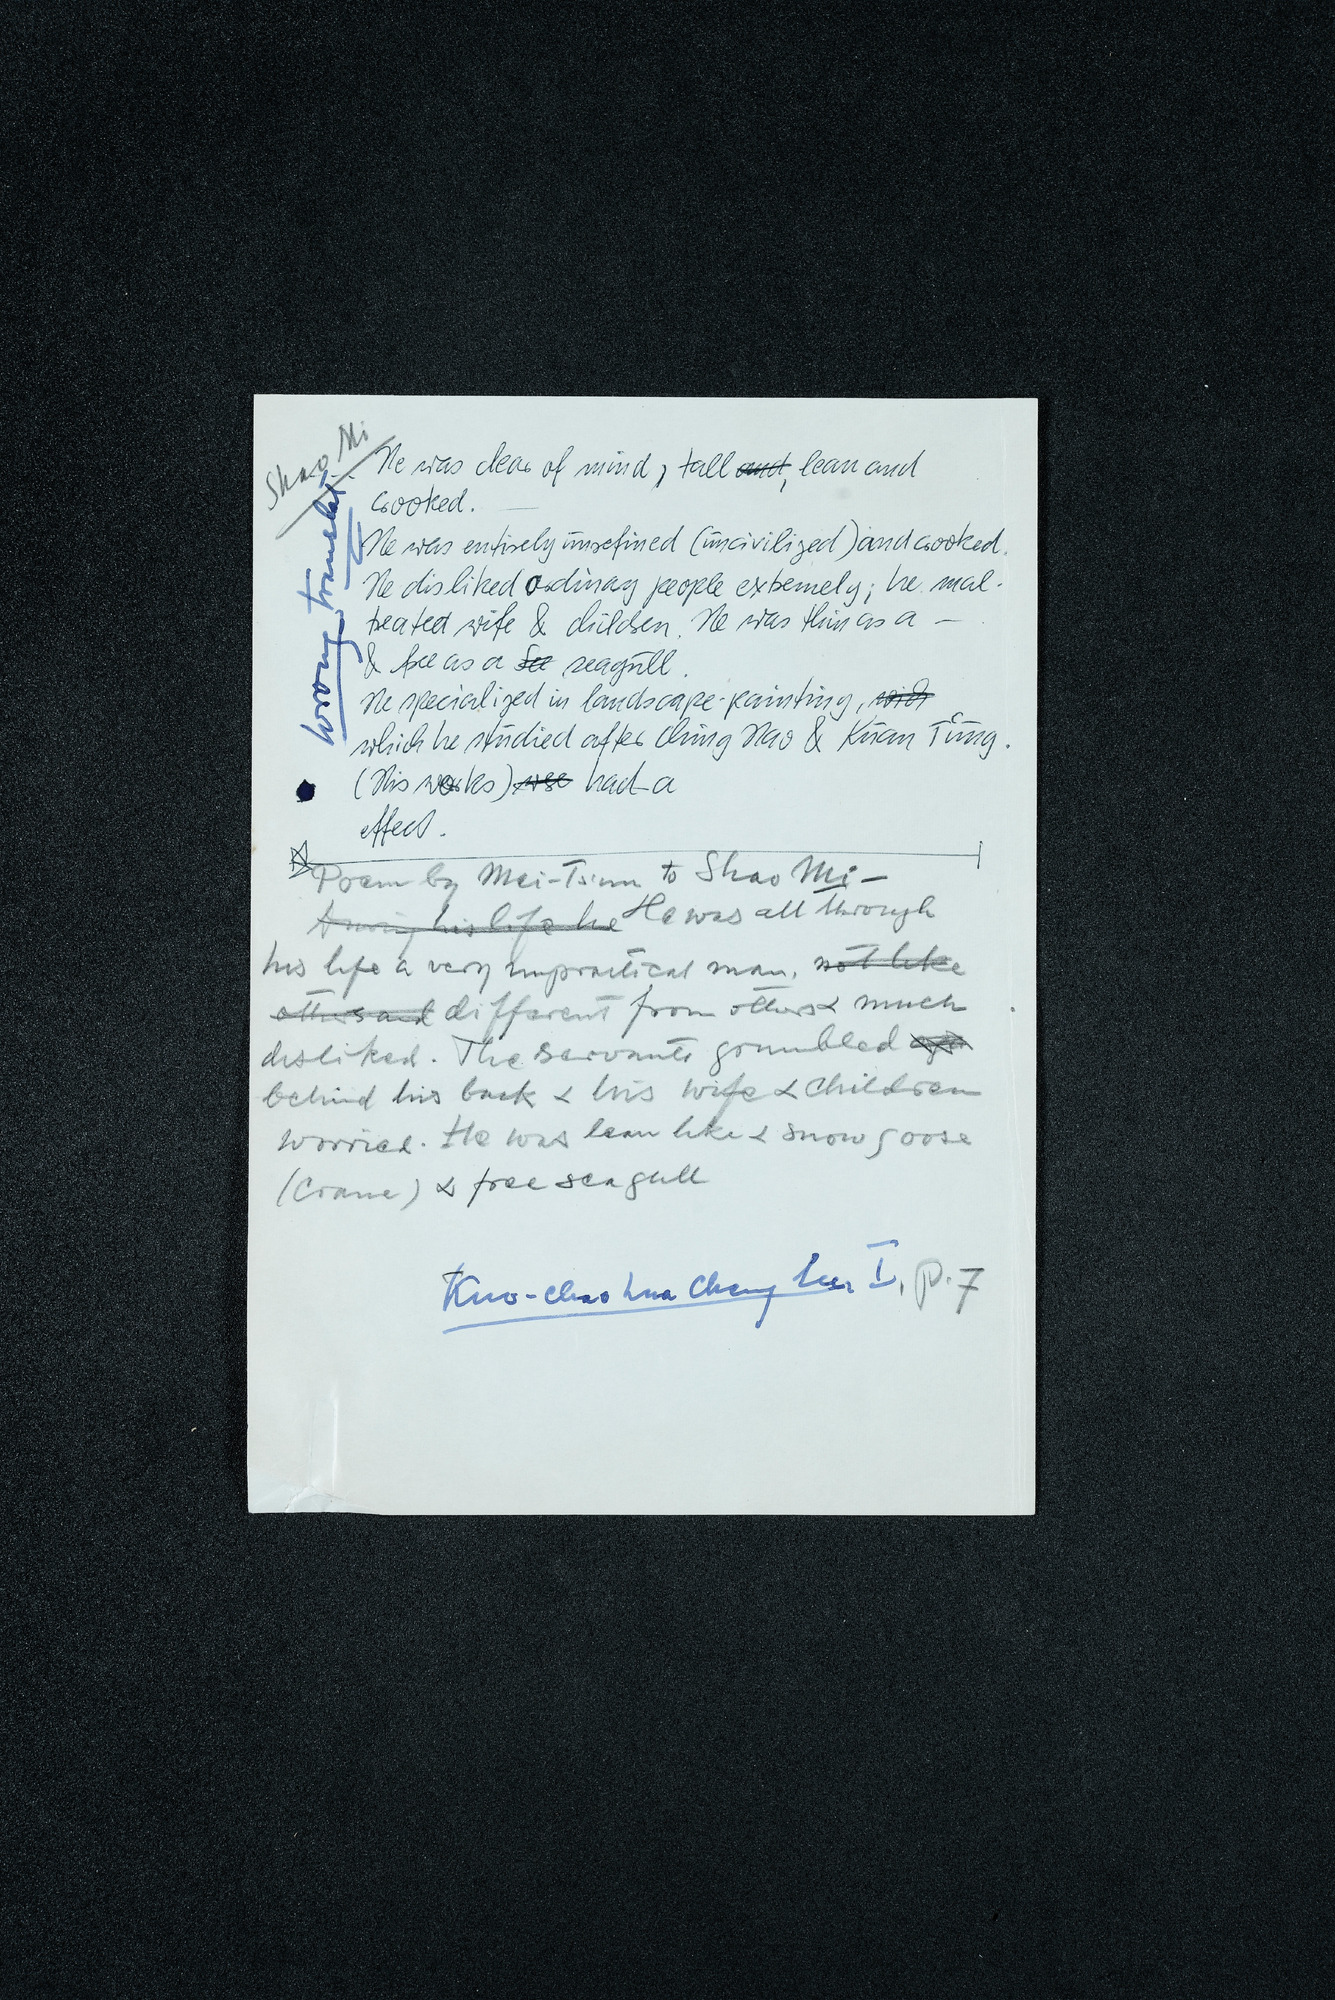 Shao Mi
wrong translat.
He was clear of mind, tall and, lean and
crooked.
He was entirely unrefined (uncivilized) and crooked.
He disliked ordinary people extremely; he mal-
treated wife & children. He was thin as a —
& free as a See seagull.
He specialized in landscape-painting, with
which he studied after Ching Hao & Kuan T'ung.
(His works) wse had a
effect.
Poem by Mei-Ts'un to Shao Mi —
During his life he He was all through
his life a very unpractical man, not like
others and different from others & much
disliked. The servants grumbled
behind his back & his wife & children
worried. He was lean like a snow goose
(Crane) & free seagull
Kuo-chao hua cheng lu, I, p. 7